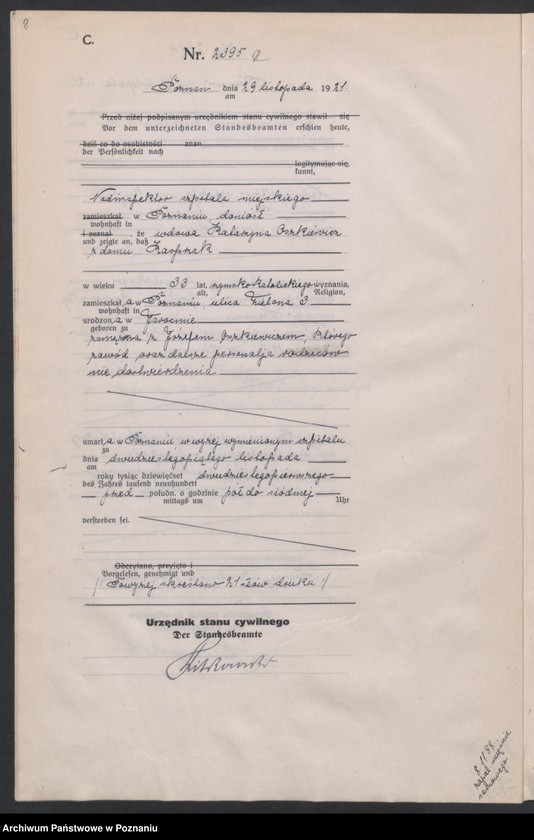 8
C.
Nr. 2395
Poznań dnia 29 listopada 1921.
am
Przed niżej podpisanym urzędnikiem stanu cywilnego stawił się
Vor dem unterzeichneten Standesbeamten erschien heute,
dziś co do osobistości znan
der Persönlichkeit nach
legitymując się,
kannt,
Nadinspektor szpitala miejskiego
zamieszkał w Poznaniu, doniósł
wohnhaft in
i zeznał, że wdowa Katarzyna Oszkiewicz
und zeigte an, daß
z domu Kasprzak
w wieku 33 lat, rzymskokatolickiego wyznania,
alt, Religion,
zamieszkał a w Poznaniu, ulica Zielona 3
wohnhaft in
urodzon a w Jarocinie
geboren zu
zamężna z Józefem Oszkiewiczem, którego
zawód oraz dalsze personalja rodziców
nie dostwierdzenia
umarł a w Poznaniu w wyżej wymienionym szpitalu
zu
dnia dwudziestegopiątego listopada
am
roku tysiąc dziewięćset dwudziestegopierwszego
des Jahres tausend neunhundert
przed połudn. o godzinie pół do siódmej
mittags um Uhr
verstorben sei.
Odczytano, przyjęto i
Vorgelesen, genehmigt und
/: Powyżej skreślono 21 słów druku :/
Urzędnik stanu cywilnego
Der Standesbeamte
8.11.88.
Archiwum Państwowe w Poznaniu